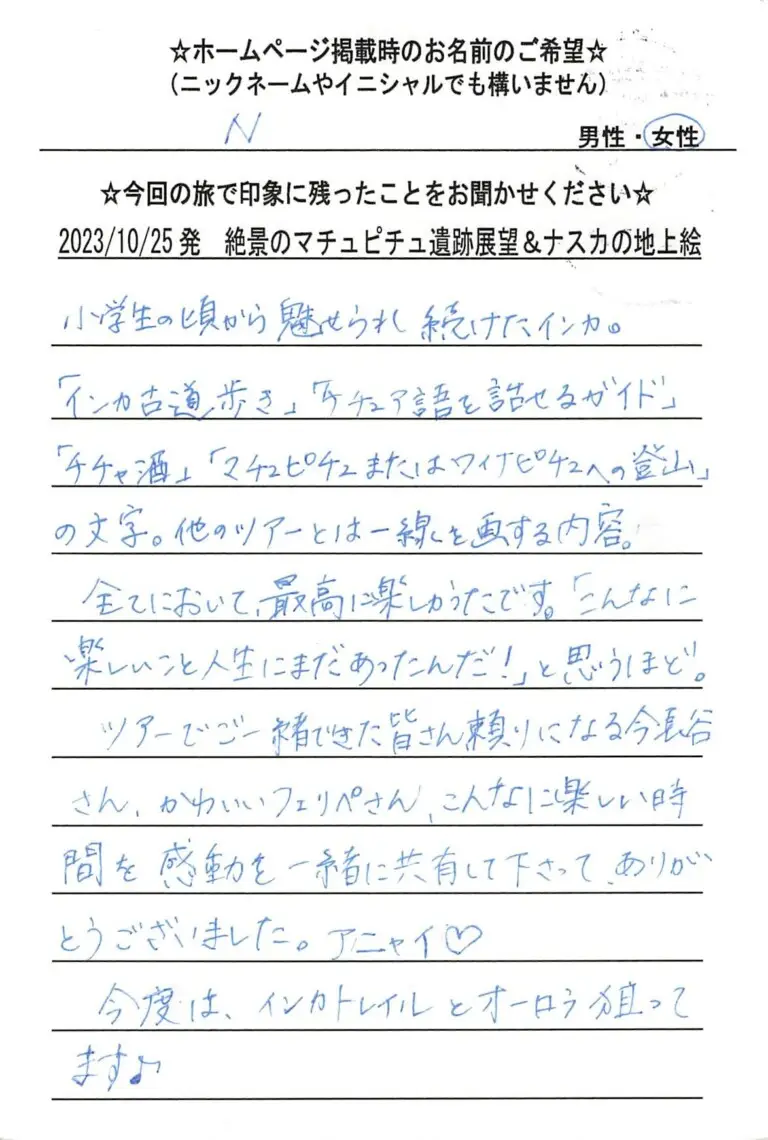 ☆ホームページ掲載時のお名前のご希望☆
（ニックネームやイニシャルでも構いません）
N
男性・女性
☆今回の旅で印象に残ったことをお聞かせください☆
2023/10/25発　絶景のマチュピチュ遺跡展望＆ナスカの地上絵
小学生の頃から魅せられ続けたインカ。
「インカ古道歩き」「ケチュア語を話せるガイド」
「チチャ酒」「マチュピチュまたはワイナピチュへの登山」
の文字。他のツアーとは一線を画する内容。
全てにおいて、最高に楽しかったです。「こんなに
楽しいこと人生にまだあったんだ！」と思うほど。
ツアーでご一緒できた皆さん、頼りになる今長谷
さん、かわいいフェリペさん、こんなに楽しい時
間を感動を一緒に共有して下さって、ありが
とうございました。アニャイ♡
今度は、インカトレイルとオーロラ狙って
ます♪